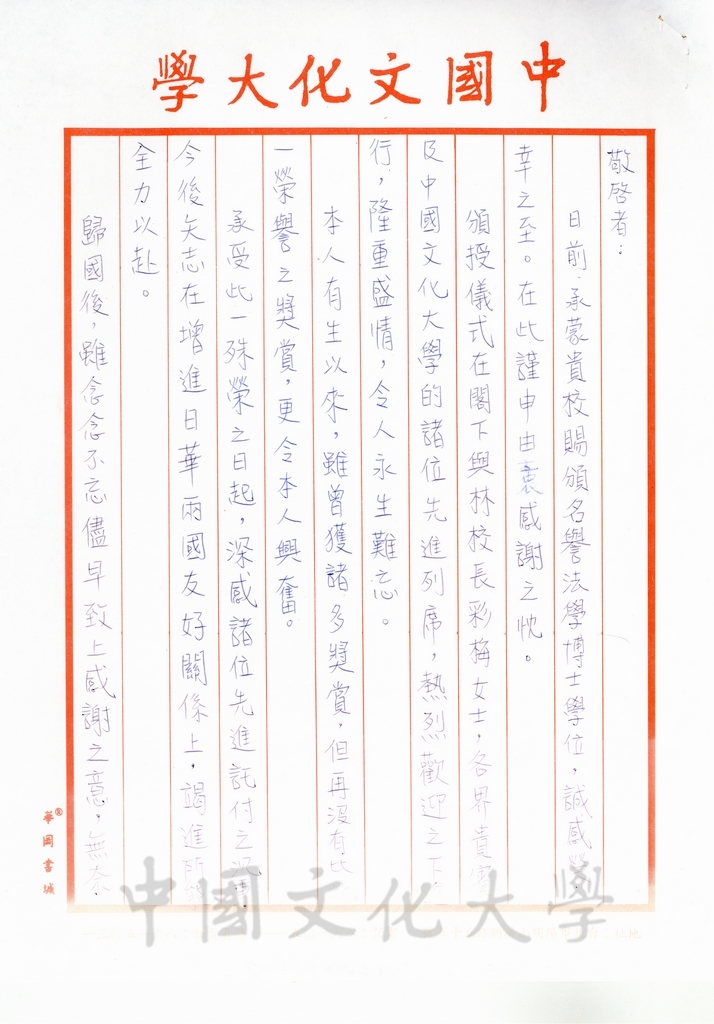 中國文化大學
敬啓者：
日前承蒙貴校賜頒名譽法學博士學位，誠感榮
幸之至。在此謹申由衷感謝之忱。
頒授儀式在閣下與林校長彩梅女士，各界貴賓
及中國文化大學的諸位先進列席，熱烈歡迎之下
行，隆重盛情，令人永生難忘。
本人有生以來，雖曾獲諸多獎賞，但再沒有比
一榮譽之獎賞，更令本人興奮。
承受此一殊榮之日起，深感諸位先進託付之
今後矢志在增進日華兩國友好關係上，竭進所
全力以赴。
歸國後，雖念念不忘儘早致上感謝之意，無奈
華岡書城
中國文化大學